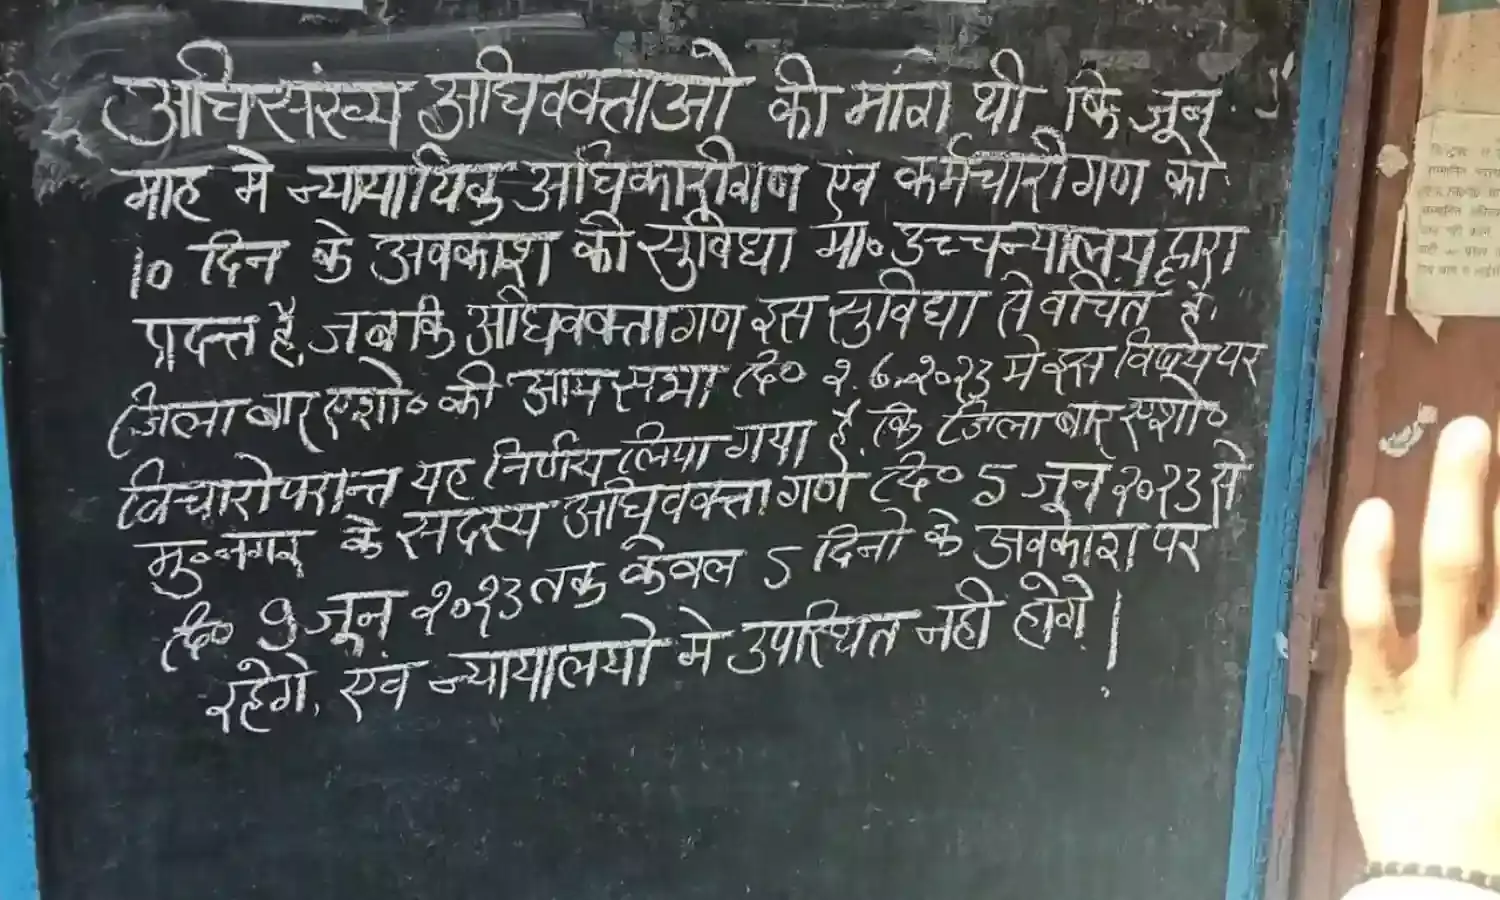 अधिसंख्य अधिवक्ताओ की मांग थी कि जून
माह मे न्यायायिक अधिकारीगण एंव कर्मचारीगण को
10 दिन के अवकाश की सुविधा मा० उच्चन्यालय द्वारा
प्रदत्त है, जबकि अधिवक्तागण इस सुविधा से वंचित है.
जिला बार एशो० की आम सभा दि० २.6.२०२3 मे इस विषय पर
विचारोपरान्त यह निर्णय लिया गया है, कि जिला बार एशो०
मु०नगर के सदस्य अधिवक्ता गण दि० 5 जून २०२3 से
दि० 9 जून २०२3 तक केवल 5 दिनो के अवकाश पर
रहेगे, एंव न्यायालयो मे उपस्थित नही होगे।